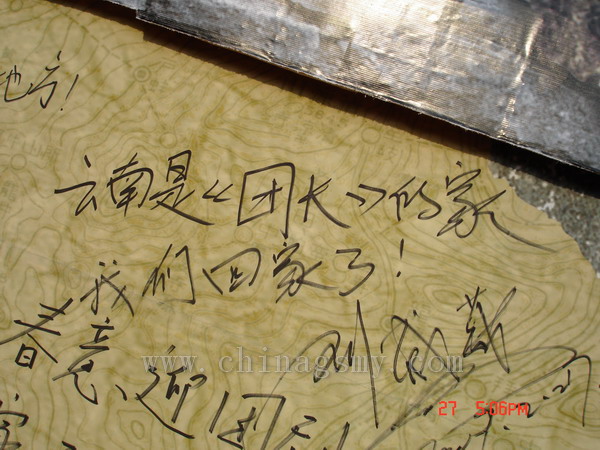 地方！
云南是《团长》的家
我们回家了！
春意迎团
www.chinagsmy.com
27 5:06PM